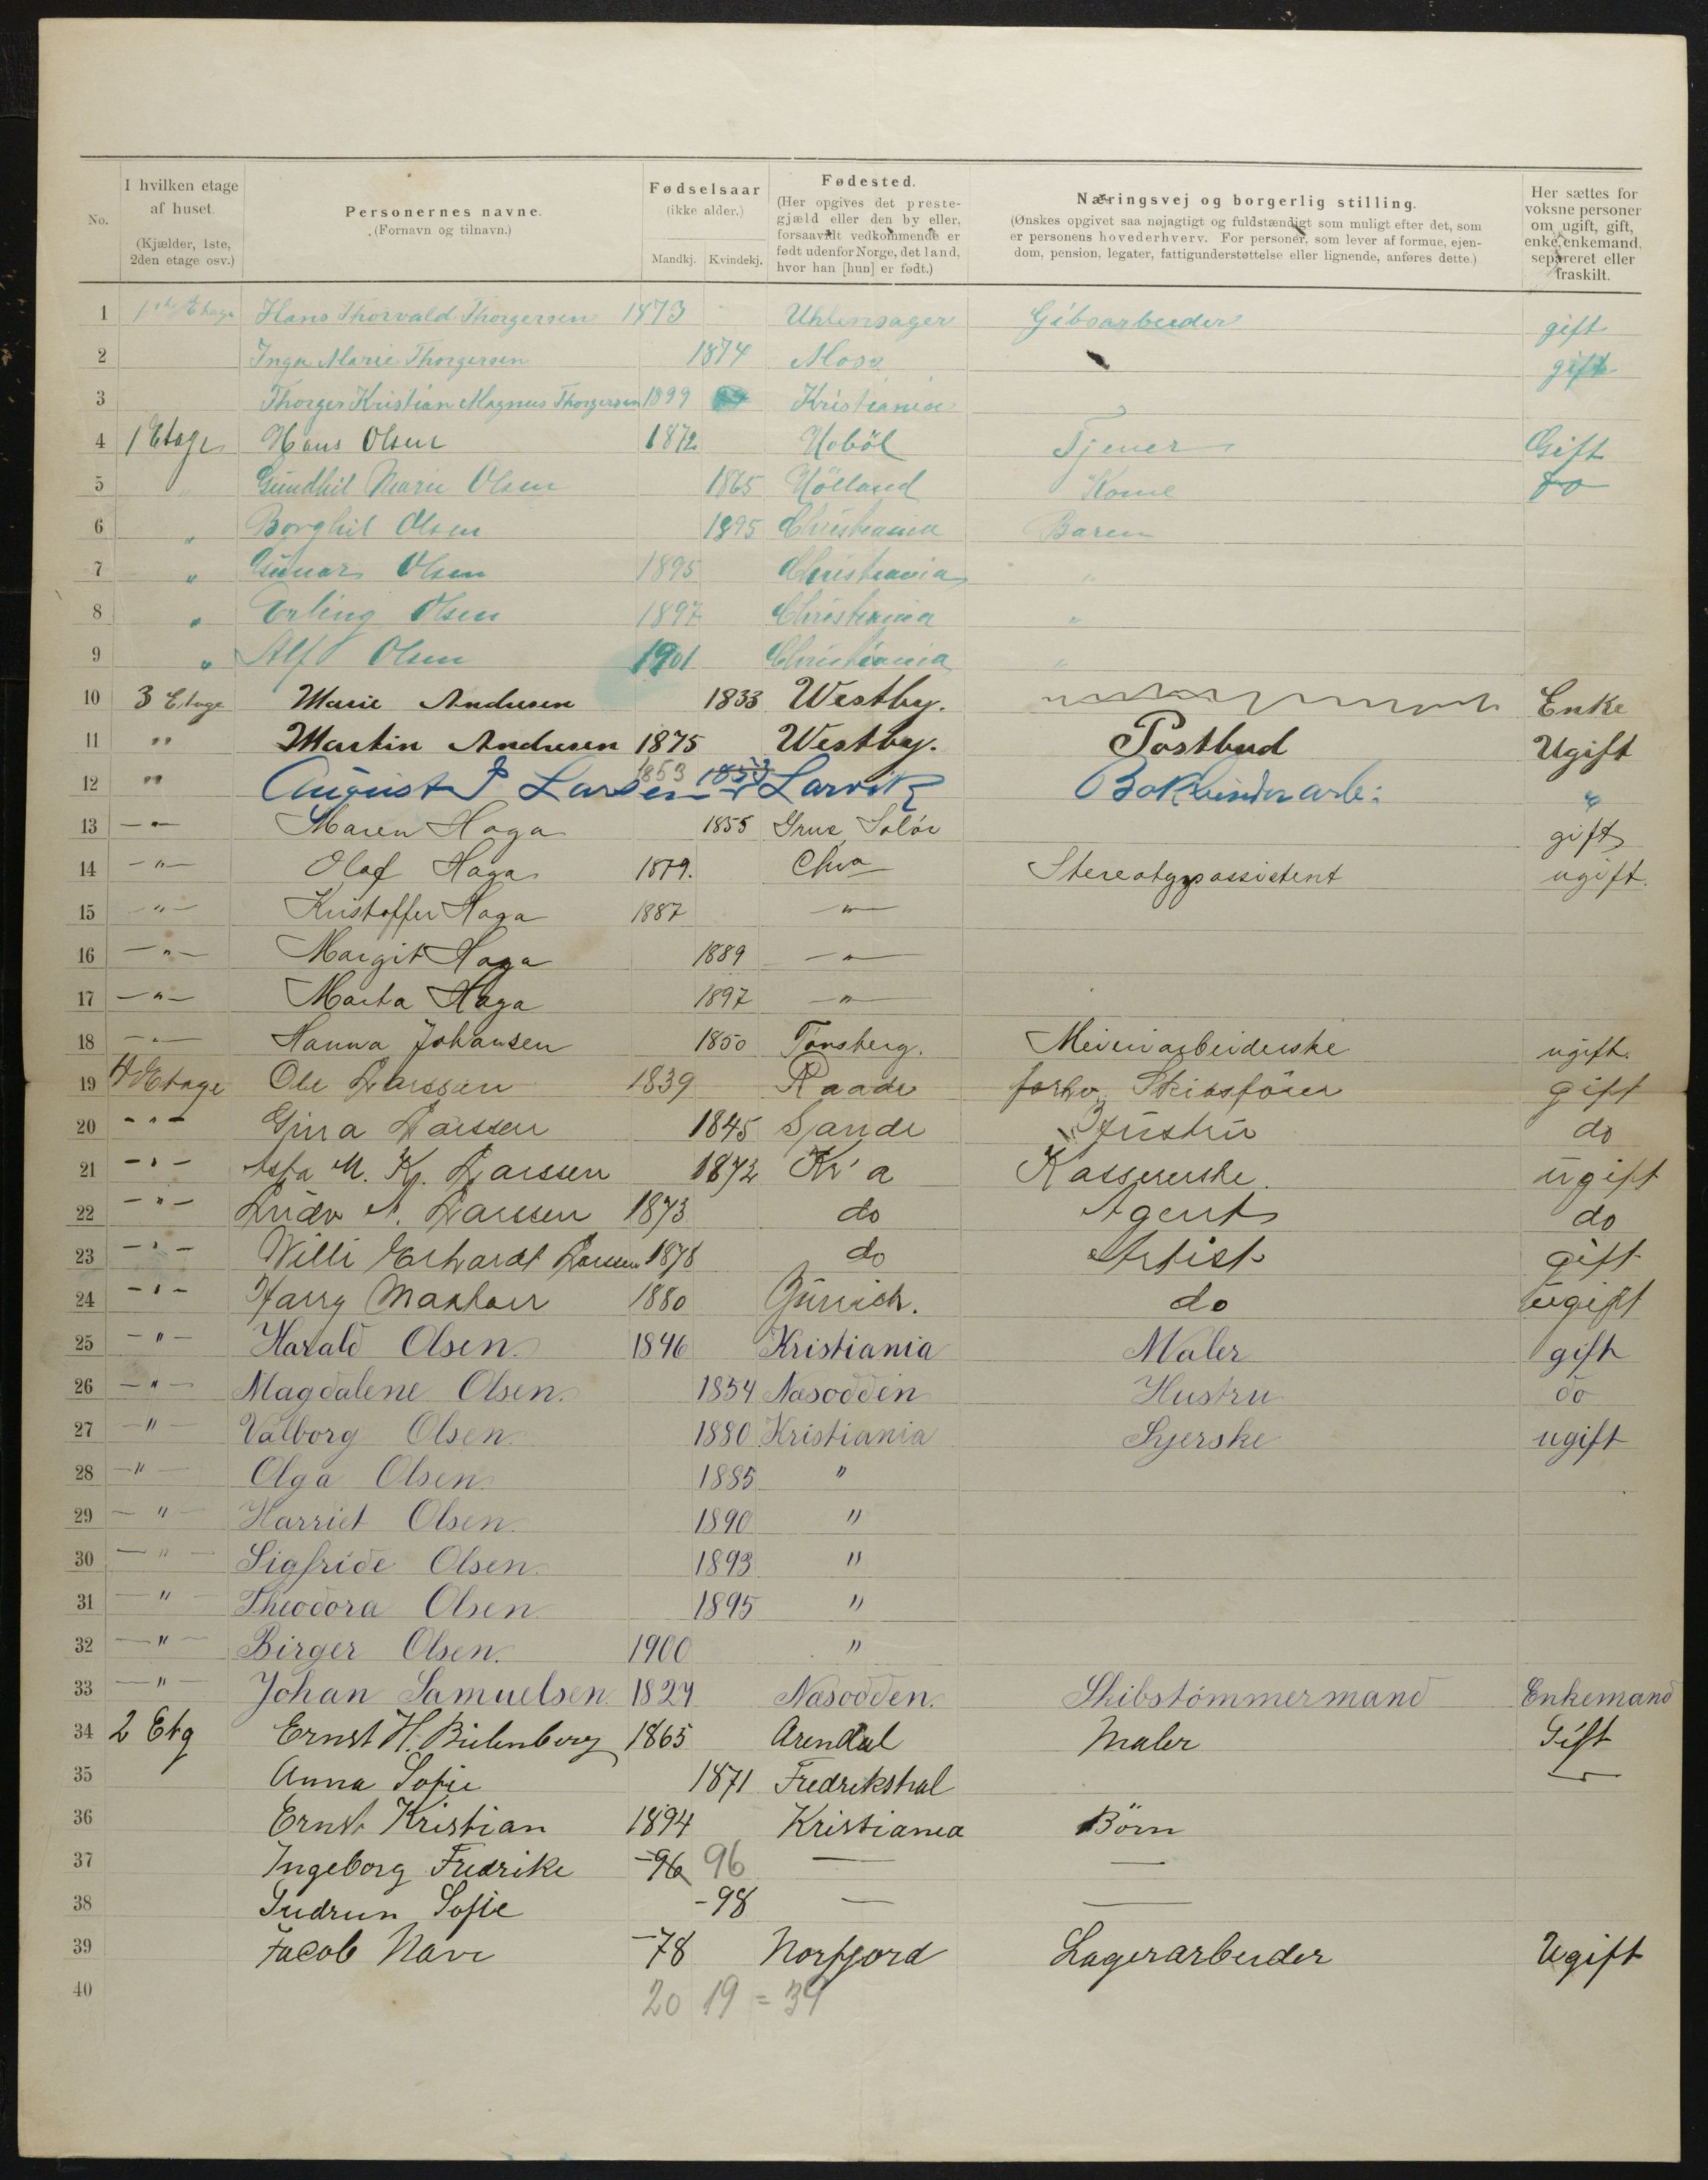 No. I hvilken etage af huset. (Kjælder, 1ste, 2den etage osv.) Personernes navne. (Fornavn og tilnavn.) Fødselsaar (ikke alder.) Mandkj. Kvindekj. Fødested. (Her opgives det prestegjæld eller den by eller, forsaavidt vedkommende er født udenfor Norge, det land, hvor han [hun] er født.) Næringsvej og borgerlig stilling. (Ønskes opgivet saa nøjagtigt og fuldstændigt som muligt efter det, som er personens hovederhverv. For personer, som lever af formue, ejendom, pension, legater, fattigunderstøttelse eller lignende, anføres dette.) Her sættes for voksne personer om ugift, gift, enke, enkemand, separeret eller fraskilt.
1 1ste Etage Hans Thorvald Thorgersen 1873 Uhlensager Gibsarbeider gift
2 Inga Marie Thorgersen 1874 Moss gift
3 Thorger Kristian Magnus Thorgersen 1899 Kristiania
4 1 Etage Hans Olsen 1872 Hoböl Tjener Gift
5 " Gundhil Marie Olsen 1865 Höland Kone do
6 " Borghil Olsen 1895 Christiania Baren
7 " Gunar Olsen 1895 Christiania "
8 " Erling Olsen 1897 Christiania "
9 " Alf Olsen 1901 Christiania "
10 3 Etage Marie Andresen 1833 Westby. Enke
11 " Martin Andresen 1875 Westby. Postbud Ugift
12 " August Larsen 1853 1853 Larvik Bokbinderarb: "
13 — " — Maren Haga 1855 Grue, Solör gift
14 — " — Olaf Haga 1879. Chra Stereotypassistent ugift.
15 — " — Kristoffer Haga 1887 — " —
16 — " — Margit Haga 1889 — " —
17 — " — Marta Haga 1897 — " —
18 — " — Hanna Johansen 1850 Tönsberg. Meieriarbeiderske ugift.
19 4 Etage Ole Larssen 1839 Raade forhv. Skibsförer gift
20 - " - Gina Larssen 1845 Sande Hustru do
21 - " - Asta M. Kr. Larssen 1872 Kr'a Kassererske. ugift
22 - " - Ludv A. Larssen 1873 do Agent do
23 - " - Willi Erhardt Larssen 1878 do Artist gift
24 - " - Harry 1880 do ugift
25 - " - Harald Olsen. 1846 Kristiania Maler gift
26 - " - Magdalene Olsen. 1854 Næsodden Hustru do
27 - " Valborg Olsen 1880 Kristiania Syerske ugift
28 - " - Olga Olsen 1885 "
29 - " - Harriet Olsen. 1890 "
30 - " - Sigfride Olsen. 1893 "
31 - " - Theodora Olsen 1895 "
32 - " - Birger Olsen. 1900 "
33 - " - Johan Samuelsen. 1824 Næsodden. Skibstömmermand Enkemand
34 2 Etg Ernst H. Bielenberg 1865 Arendal Maler Gift
35 Anna Sofie 1871 Fredrikshal —
36 Ernst Kristian 1894 Kristiania Börn
37 Ingeborg Fredrike -96 96 — —
38 Gudrun Sofie -98 — —
39 Jacob Nave -78 Norfjord Lagerarbeider Ugift
40 20 19 = 39